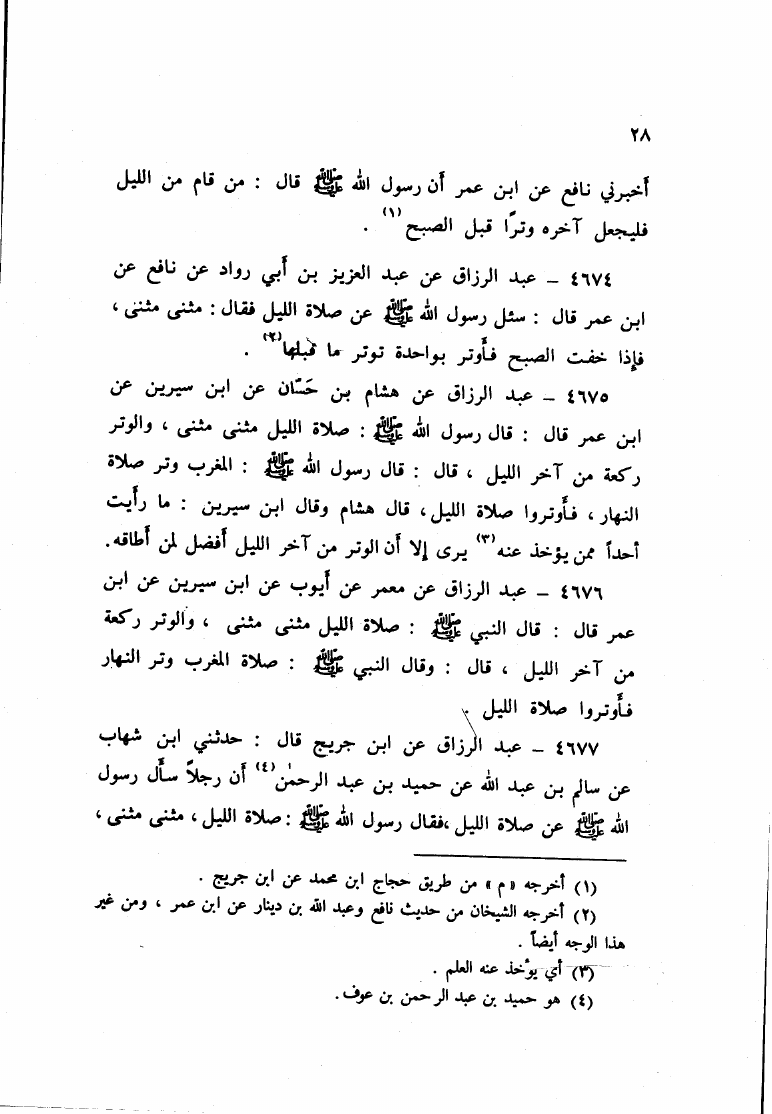 ٢٨
أخبرني نافع عن ابن عمر أن رسول الله ﷺ قال : من قام من الليل
فليجعل آخره وترًا قبل الصبح (١) .
٤٦٧٤ – عبد الرزاق عن عبد العزيز بن أبي رواد عن نافع عن
ابن عمر قال : سئل رسول الله ﷺ عن صلاة الليل فقال : مثنى مثنى ،
فإذا خفت الصبح فأوتر بواحدة توتر ما قبلها (٢) .
٤٦٧٥ – عبد الرزاق عن هشام بن حَسّان عن ابن سيرين عن
ابن عمر قال : قال رسول الله ﷺ : صلاة الليل مثنى مثنى ، والوتر
ركعة من آخر الليل ، قال : قال رسول الله ﷺ : المغرب وتر صلاة
النهار ، فأوتروا صلاة الليل ، قال هشام وقال ابن سيرين : ما رأيت
أحداً ممن يؤخذ عنه (٣) يرى إلا أن الوتر من آخر الليل أفضل لمن أطاقه.
٤٦٧٦ – عبد الرزاق عن معمر عن أيوب عن ابن سيرين عن ابن
عمر قال : قال النبي ﷺ : صلاة الليل مثنى مثنى ، والوتر ركعة
من آخر الليل ، قال : وقال النبي ﷺ : صلاة المغرب وتر النهار
فأوتروا صلاة الليل .
٤٦٧٧ – عبد الرزاق عن ابن جريج قال : حدثني ابن شهاب
عن سالم بن عبد الله عن حميد بن عبد الرحمٰن (٤) أن رجلاً سأل رسول
الله ﷺ عن صلاة الليل ،فقال رسول الله ﷺ : صلاة الليل ، مثنى مثنى ،
(١) أخرجه « م » من طريق حجاج ابن محمد عن ابن جريج .
(٢) أخرجه الشيخان من حديث نافع وعبد الله بن دينار عن ابن عمر ، ومن غير
هذا الوجه أيضاً .
(٣) أي يؤخذ عنه العلم .
(٤) هو حميد بن عبد الرحمن بن عوف.